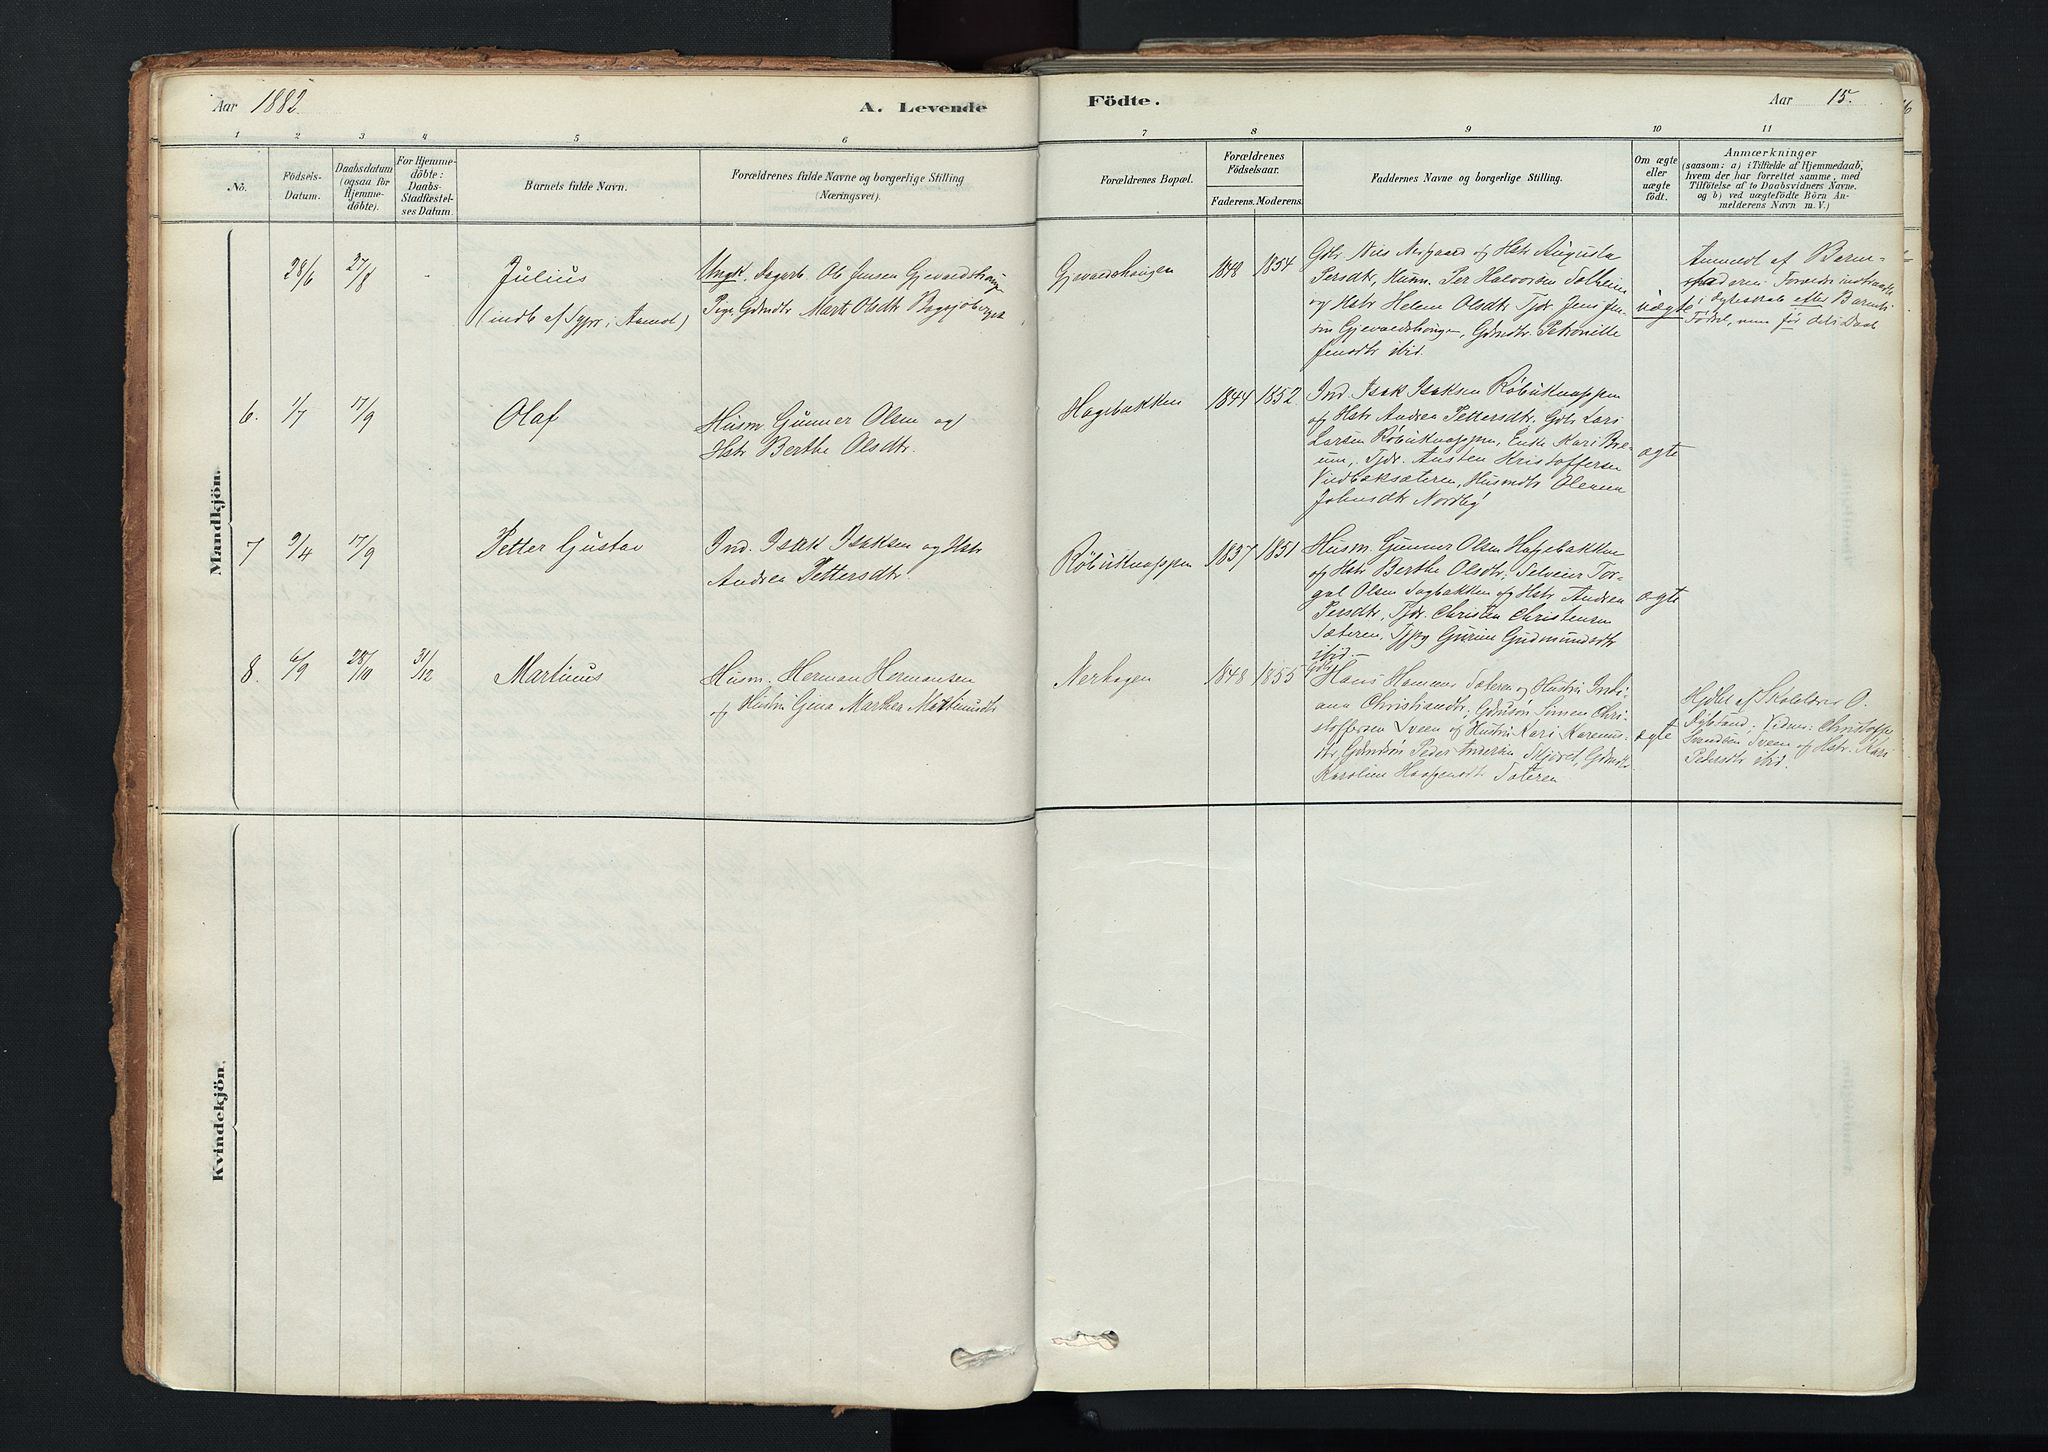 Aar 1882.
A. Levende
Födte.
Aar 15.
1 2 3 4 5 6 7 8 9 10 11
No.
Födsels-
Datum.
Daabsdatum
(ogsaa for
Hjemme-
döbte).
For Hjemme-
döbte:
Daabs-
Stadfæstel-
ses Datum.
Barnets fulde Navn.
Forældrenes fulde Navne og borgerlige Stilling
(Næringsvei).
Forældrenes Bopæl.
Forældrenes
Födselsaar.
Faderens. Moderens.
Faddernes Navne og borgerlige Stilling.
Om ægte
eller
uægte
födt.
Anmærkninger
(saasom: a) i Tilfælde af Hjemmedaab,
hvem der har forrettet samme, med
Tilföielse af to Daabsvidners Navne.
og b) ved uægtefödte Börn An-
melderens Navn m. V.)
Mandkjön.
28/6 27/8 -
Julius
(indb af Sypr. i Aamot)
Ungk. Dagarb. Ole Jensen Gjevaldshaugen
Pige Gdmdtr Marte Olsdtr
Gjevaldshaugen
1848 1854
Gbr. Nils Nesgaard og Hstr Augusta
Persdtr, Husm. Per Halvorsen Solheim
og Hstr Helene Olsdtr, Tjdr. Jens Jen-
sen Gjevaldshaugen, Gdmdtr Petronille
Jensdtr ibid.
uægte
Anmeldt af Barne-
faderen. Foreldr. indtraadt i
Ægteskab efter Barnets
Födsel, men för dets Daab
6. 1/7 17/9
Olaf
Husm. Gunner Olsen og
Hstr Berthe Olsdtr.
Hagebakken
1844 1852
Ind. Isak Isaksen Röbukknappen
og Hstr Andrea Pettersdtr, Gdbr Lars
Larsen Röbukknappen, Enke Kari Bre-
um, Tjdr. Austen Kristoffersen
Vindbæksæteren, Husmdtr Olenea
Johnsdtr Nordby
ægte
7 9/4 17/9
Petter Gustav
Ind. Isak Isaksen og Hstr
Andrea Pettersdtr.
Röbukknappen
1837 1851
Husm. Gunner Olsen Hagebakken
og Hstr Berthe Olsdtr; Selveier Tor-
gal Olsen Sagbakken og Hstr Andrea
Persdtr, Tjdr. Christen Christensen
Sæteren, Tjpg Gurine Gudmundsdtr
ibid. -
ægte
8. 6/9 28/10 31/12
Martinus
Husm. Herman Hermansen
og Hustru Gina Marthea Martinusdtr
Nerhagen
1848 1855
Gbr
Hans Hammer Sateren og Hustru Indi-
ana Christiansdtr, Gdmsön Simen Chri-
stoffersen Sveen og Hustru Kari Karenus-
dtr, Gdmdsön Peder Andersen Skjöret, Gdmdtr
Karoline Haagensdtr Sateren
ægte
Hjdbt af Skolelærer O.
Sjölstand; Vidner: Christoffer
Svendsen Sveen og Hstr. Kari
Pedersdtr ibid.
Kvindekjön.